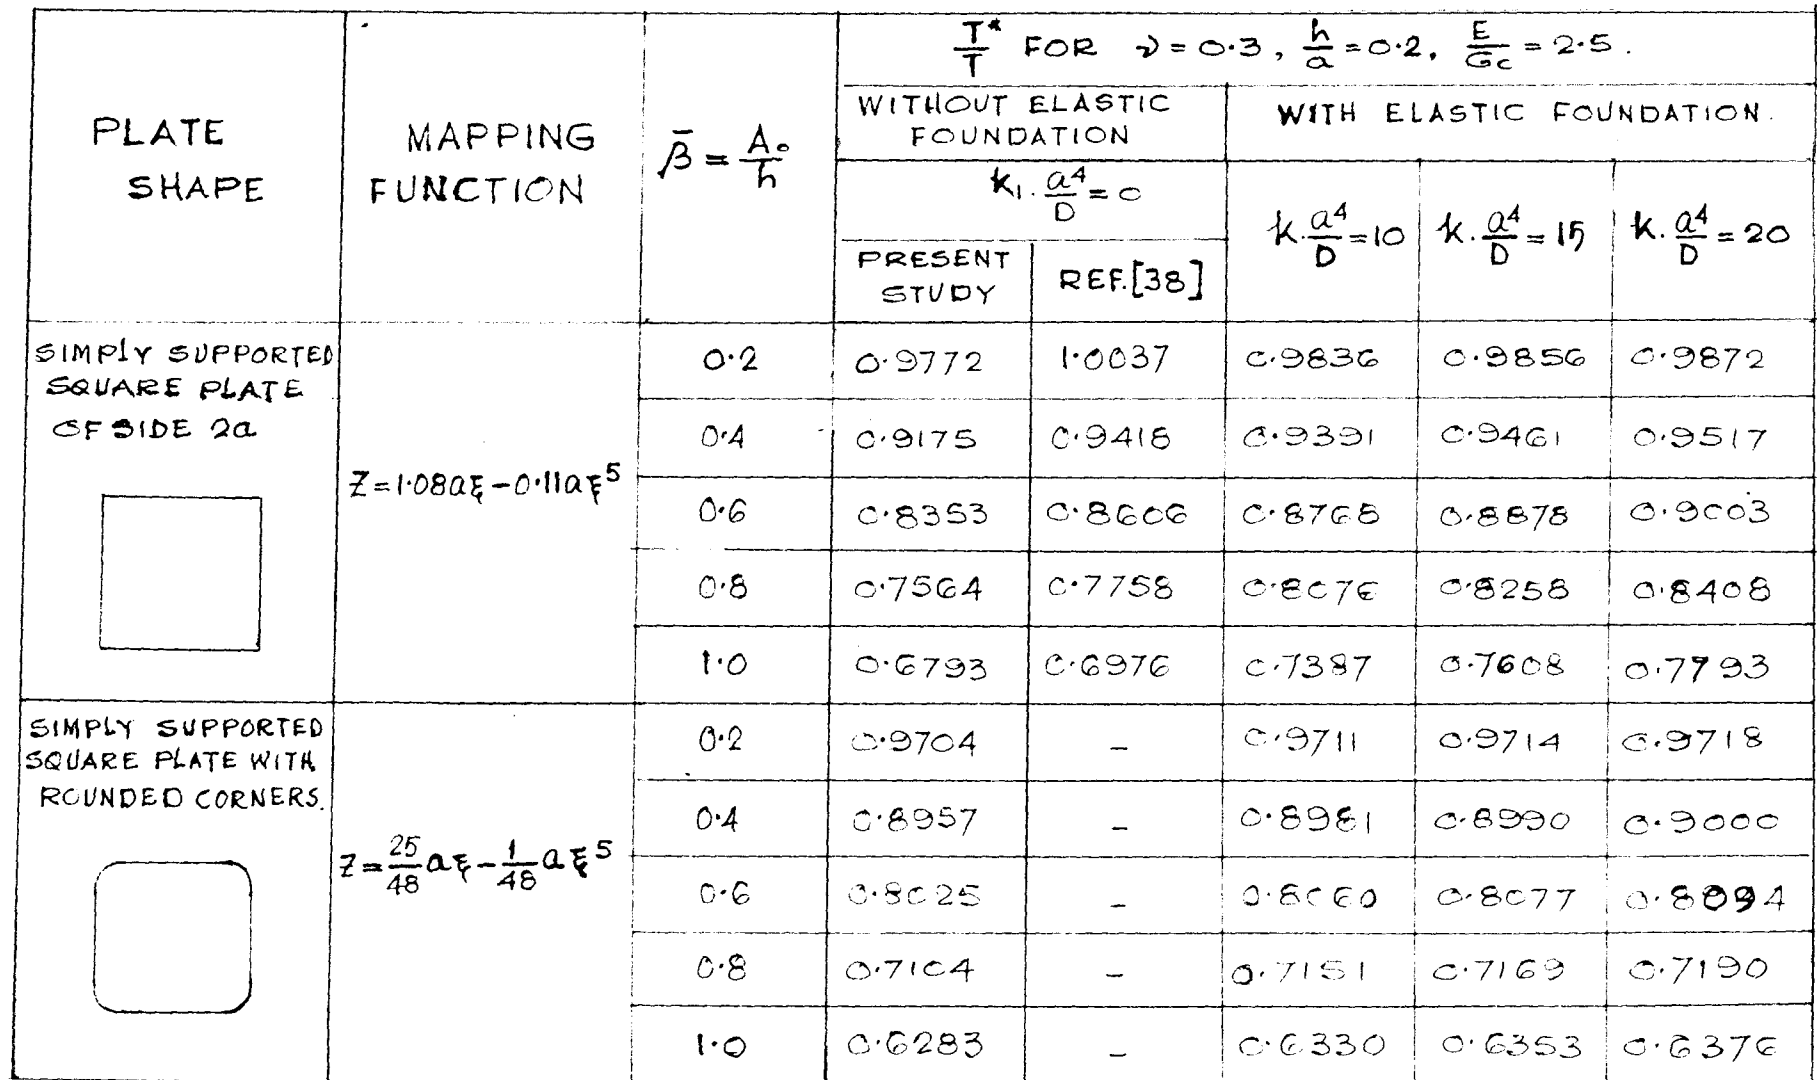 PLATE SHAPE
MAPPING FUNCTION
β̄ = A₀/h
T*/T FOR ν = 0.3, h/a = 0.2, E/Gc = 2.5.
WITHOUT ELASTIC FOUNDATION
WITH ELASTIC FOUNDATION.
k₁. a⁴/D = 0
k. a⁴/D = 10
k. a⁴/D = 15
k. a⁴/D = 20
PRESENT STUDY
REF.[38]
SIMPLY SUPPORTED
SQUARE PLATE
OF SIDE 2a
Z = 1.08aξ - 0.11aξ⁵
0.2 0.9772 1.0037 0.9836 0.9856 0.9872
0.4 0.9175 0.9418 0.9391 0.9461 0.9517
0.6 0.8353 0.8606 0.8768 0.8878 0.9003
0.8 0.7564 0.7758 0.8076 0.8258 0.8408
1.0 0.6793 0.6976 0.7387 0.7608 0.7793
SIMPLY SUPPORTED
SQUARE PLATE WITH
ROUNDED CORNERS.
Z = 25/48 aξ - 1/48 aξ⁵
0.2 0.9704 – 0.9711 0.9714 0.9718
0.4 0.8957 – 0.8981 0.8990 0.9000
0.6 0.8025 – 0.8060 0.8077 0.8094
0.8 0.7104 – 0.7151 0.7169 0.7190
1.0 0.6283 – 0.6330 0.6353 0.6376